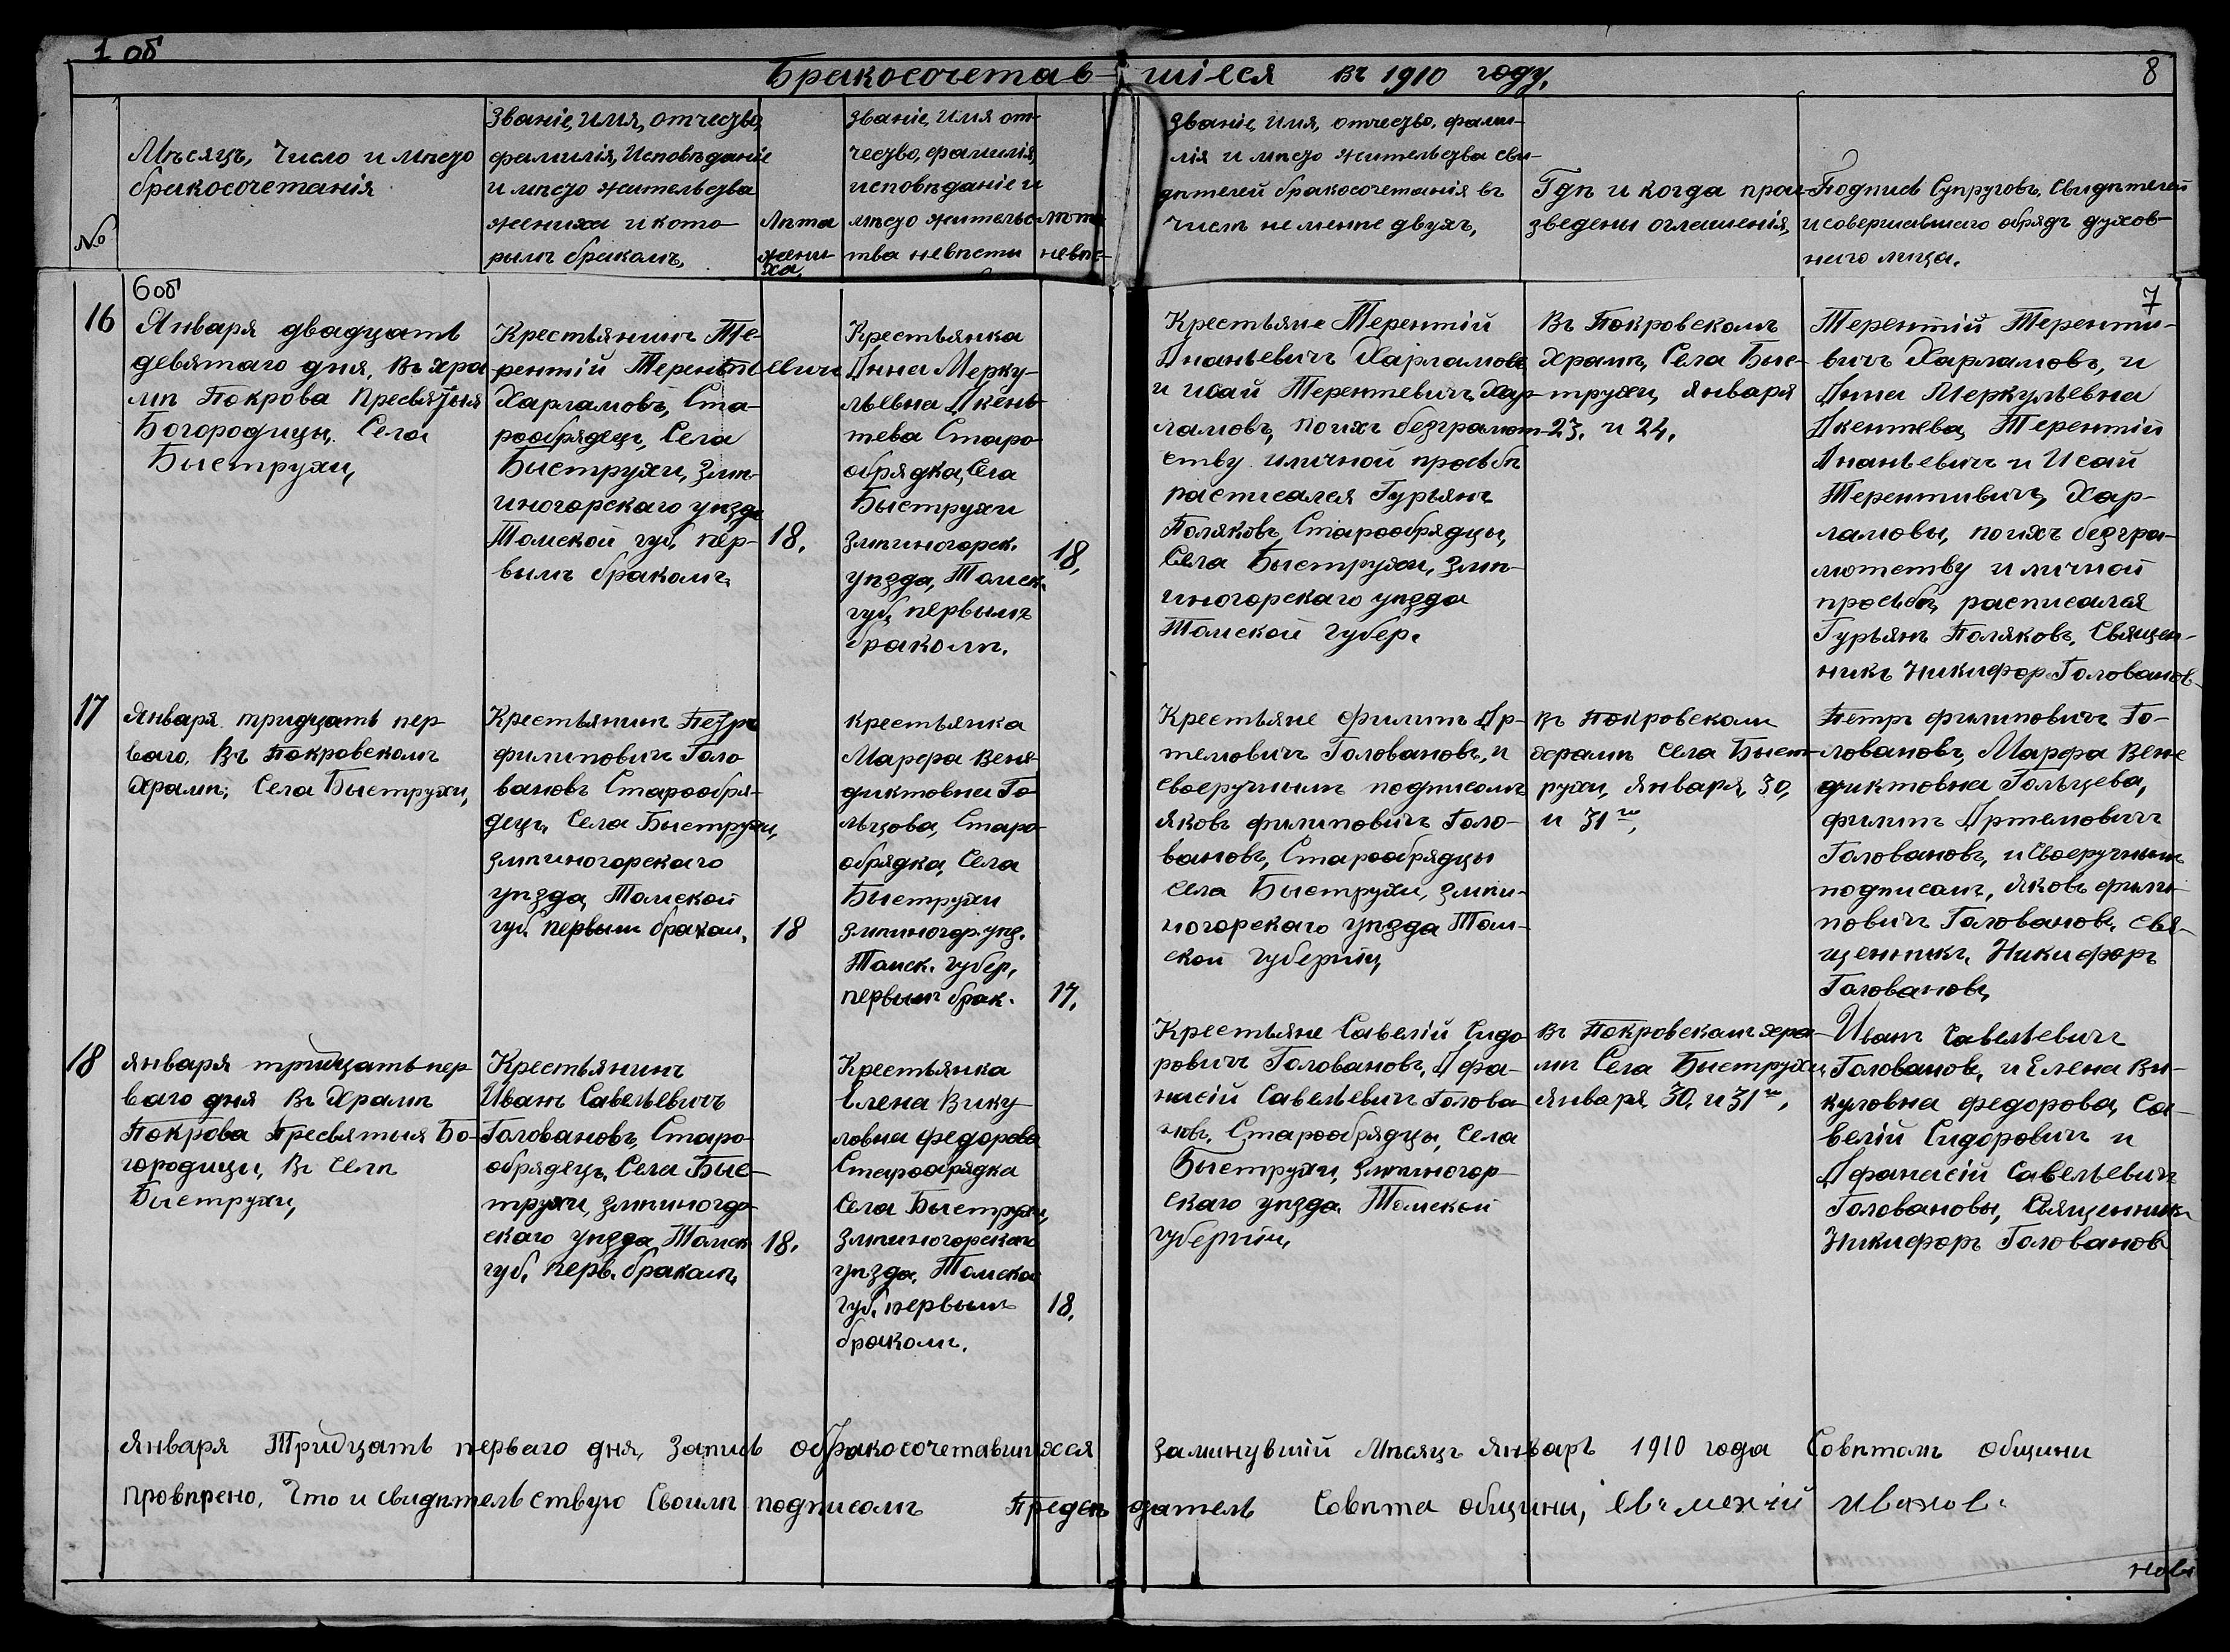 1 об
Бракосочетав- шіеся въ 1910 году.
8
№
Мѣсяцъ, Число и мѣсто
бракосочетанія
Званіе, имя, отчество,
фамилія, Исповѣданіе
и мѣсто жительства
жениха и кото-
рымъ бракомъ,
Лѣта
жени-
ха,
Званіе, Имя от-
чество, фамилія,
исповѣданіе и
мѣсто жительс-
тва невѣсты
лѣта
невѣс-
Званіе, Имя, отчество, фами-
лія и мѣсто жительства сви-
дѣтелей бракосочетанія въ
числѣ не менѣе двухъ,
Гдѣ и когда прои-
зведены оглашенія,
Подписъ Супруговъ, Свидѣтелей
и совершавшаго обрядъ духов-
наго лица.
6 об
7
16
Января двадцать
девятаго дня, Въ хра
мѣ Покрова Пресвятыя
Богородицы, Села
Быструхи,
Крестьянинъ Те-
рентій Терентіевичъ
Харламовъ, Ста-
рообрядецъ, Села
Быструхи, Змѣ-
иногорскаго уѣзда
Томской губ. пер-
вымъ бракомъ,
18.
Крестьянка
Анна Мерку-
льевна Акень-
тева Старо-
обрядка, Села
Быструхи
Змѣиногорск.
уѣзда, Томск.
губ, первымъ
бракомъ.
18,
Крестьяне Терентій
Ананьевичъ Харламовъ
и Исай Терентевичъ Хар-
ламовъ, по ихъ безграмот-
ству и личной просьбѣ
расписался Гурьянъ
Поляковъ, Старообрядцы,
Села Быструхи, Змѣ-
иногорскаго уѣзда
Томской губер.
Въ Покровскомъ
Храмѣ, Села Быс-
трухи, Января
23. и 24.
Терентій Теренти-
вичъ Харламовъ, и
Анна Меркульевна
Акентева, Терентій
Ананьевичъ и Исай
Терентивичъ, Хар-
ламовы, по ихъ безгра-
мотству и личной
просьбѣ, расписался
Гурьянъ Поляковъ, Священ-
никъ Никифор Головановъ
17
Января тридцать пер-
ваго, Въ Покровскомъ
Храмѣ, Села Быструхи,
Крестьянинъ Петръ
Филиповичъ Голо
вановъ Старообря-
децъ, Села Быструхи,
Змѣиногорскаго
уѣзда, Томской
губ. первымъ браком,
18
крестьянка
Марфа Веня-
диктовна Го-
льцова, Старо-
обрядка, Села
Быструхи
Змѣиногор. уѣз.
Томск. губер,
первымъ брак.
17.
Крестьяне Филипъ Ар-
темовичъ Головановъ, и
Своеручнымъ подписомъ
Яковъ Филиповичъ Голо-
вановъ, Старообрядцы
Села Быструхи, Змѣи-
ногорскаго уѣзда Том-
ской губерніи,
Въ Покровскомъ
Храмѣ Села Быст-
рухи, Января, 30,
и 31го,
Петръ Филиповичъ Го-
ловановъ, Марфа Вене
диктовна Гольцева,
Филипъ Артемовичъ
Головановъ, и Своеручнымъ
подписомъ, Яковъ Фили-
повичъ Головановъ, Свя-
щенникъ, Никифоръ
Головановъ,
18
января тридцать пер-
ваго дня Въ Храмѣ
Покрова Пресвятыя Бо-
городицы, Въ Селѣ
Быструхи,
Крестьянинъ
Иванъ Савельевичъ
Головановъ, Старо-
обрядецъ, Села Быс-
трухи, Змѣиногор-
скаго уѣзда, Томск
губ. перв. бракомъ,
18.
Крестьянка
Елена Вику
ловна Федорова
Старообрядка
Села Быструхи,
Змѣиногорскаго
уѣзда, Томской
губ. первымъ
бракомъ.
18.
Крестьяне Савелій Сидо
ровичъ Головановъ, Афа-
насій Савельевичъ Голова-
новъ, Старообрядцы, Села
Быструхи, Змѣиногор-
скаго уѣзда, Томской
губерніи,
Въ Покровскомъ хра-
мѣ Села Быструхи
Января, 30, и 31го,
Иванъ Савельевичъ
Головановъ, и Елена Ви-
куловна Федорова, Са-
велій Сидоровичъ и
Афанасій Савельевичъ
Головановы, Священникъ
Никифоръ Головановъ
Января Тридцать перваго дня, Записъ о бракосочетавшихся за минувшій Мѣсяцъ Январъ 1910 года Совѣтомъ общины
провѣрено, Что и свидѣтельствую Своимъ подписомъ Предсѣдатель Совѣта общины, Ивановъ